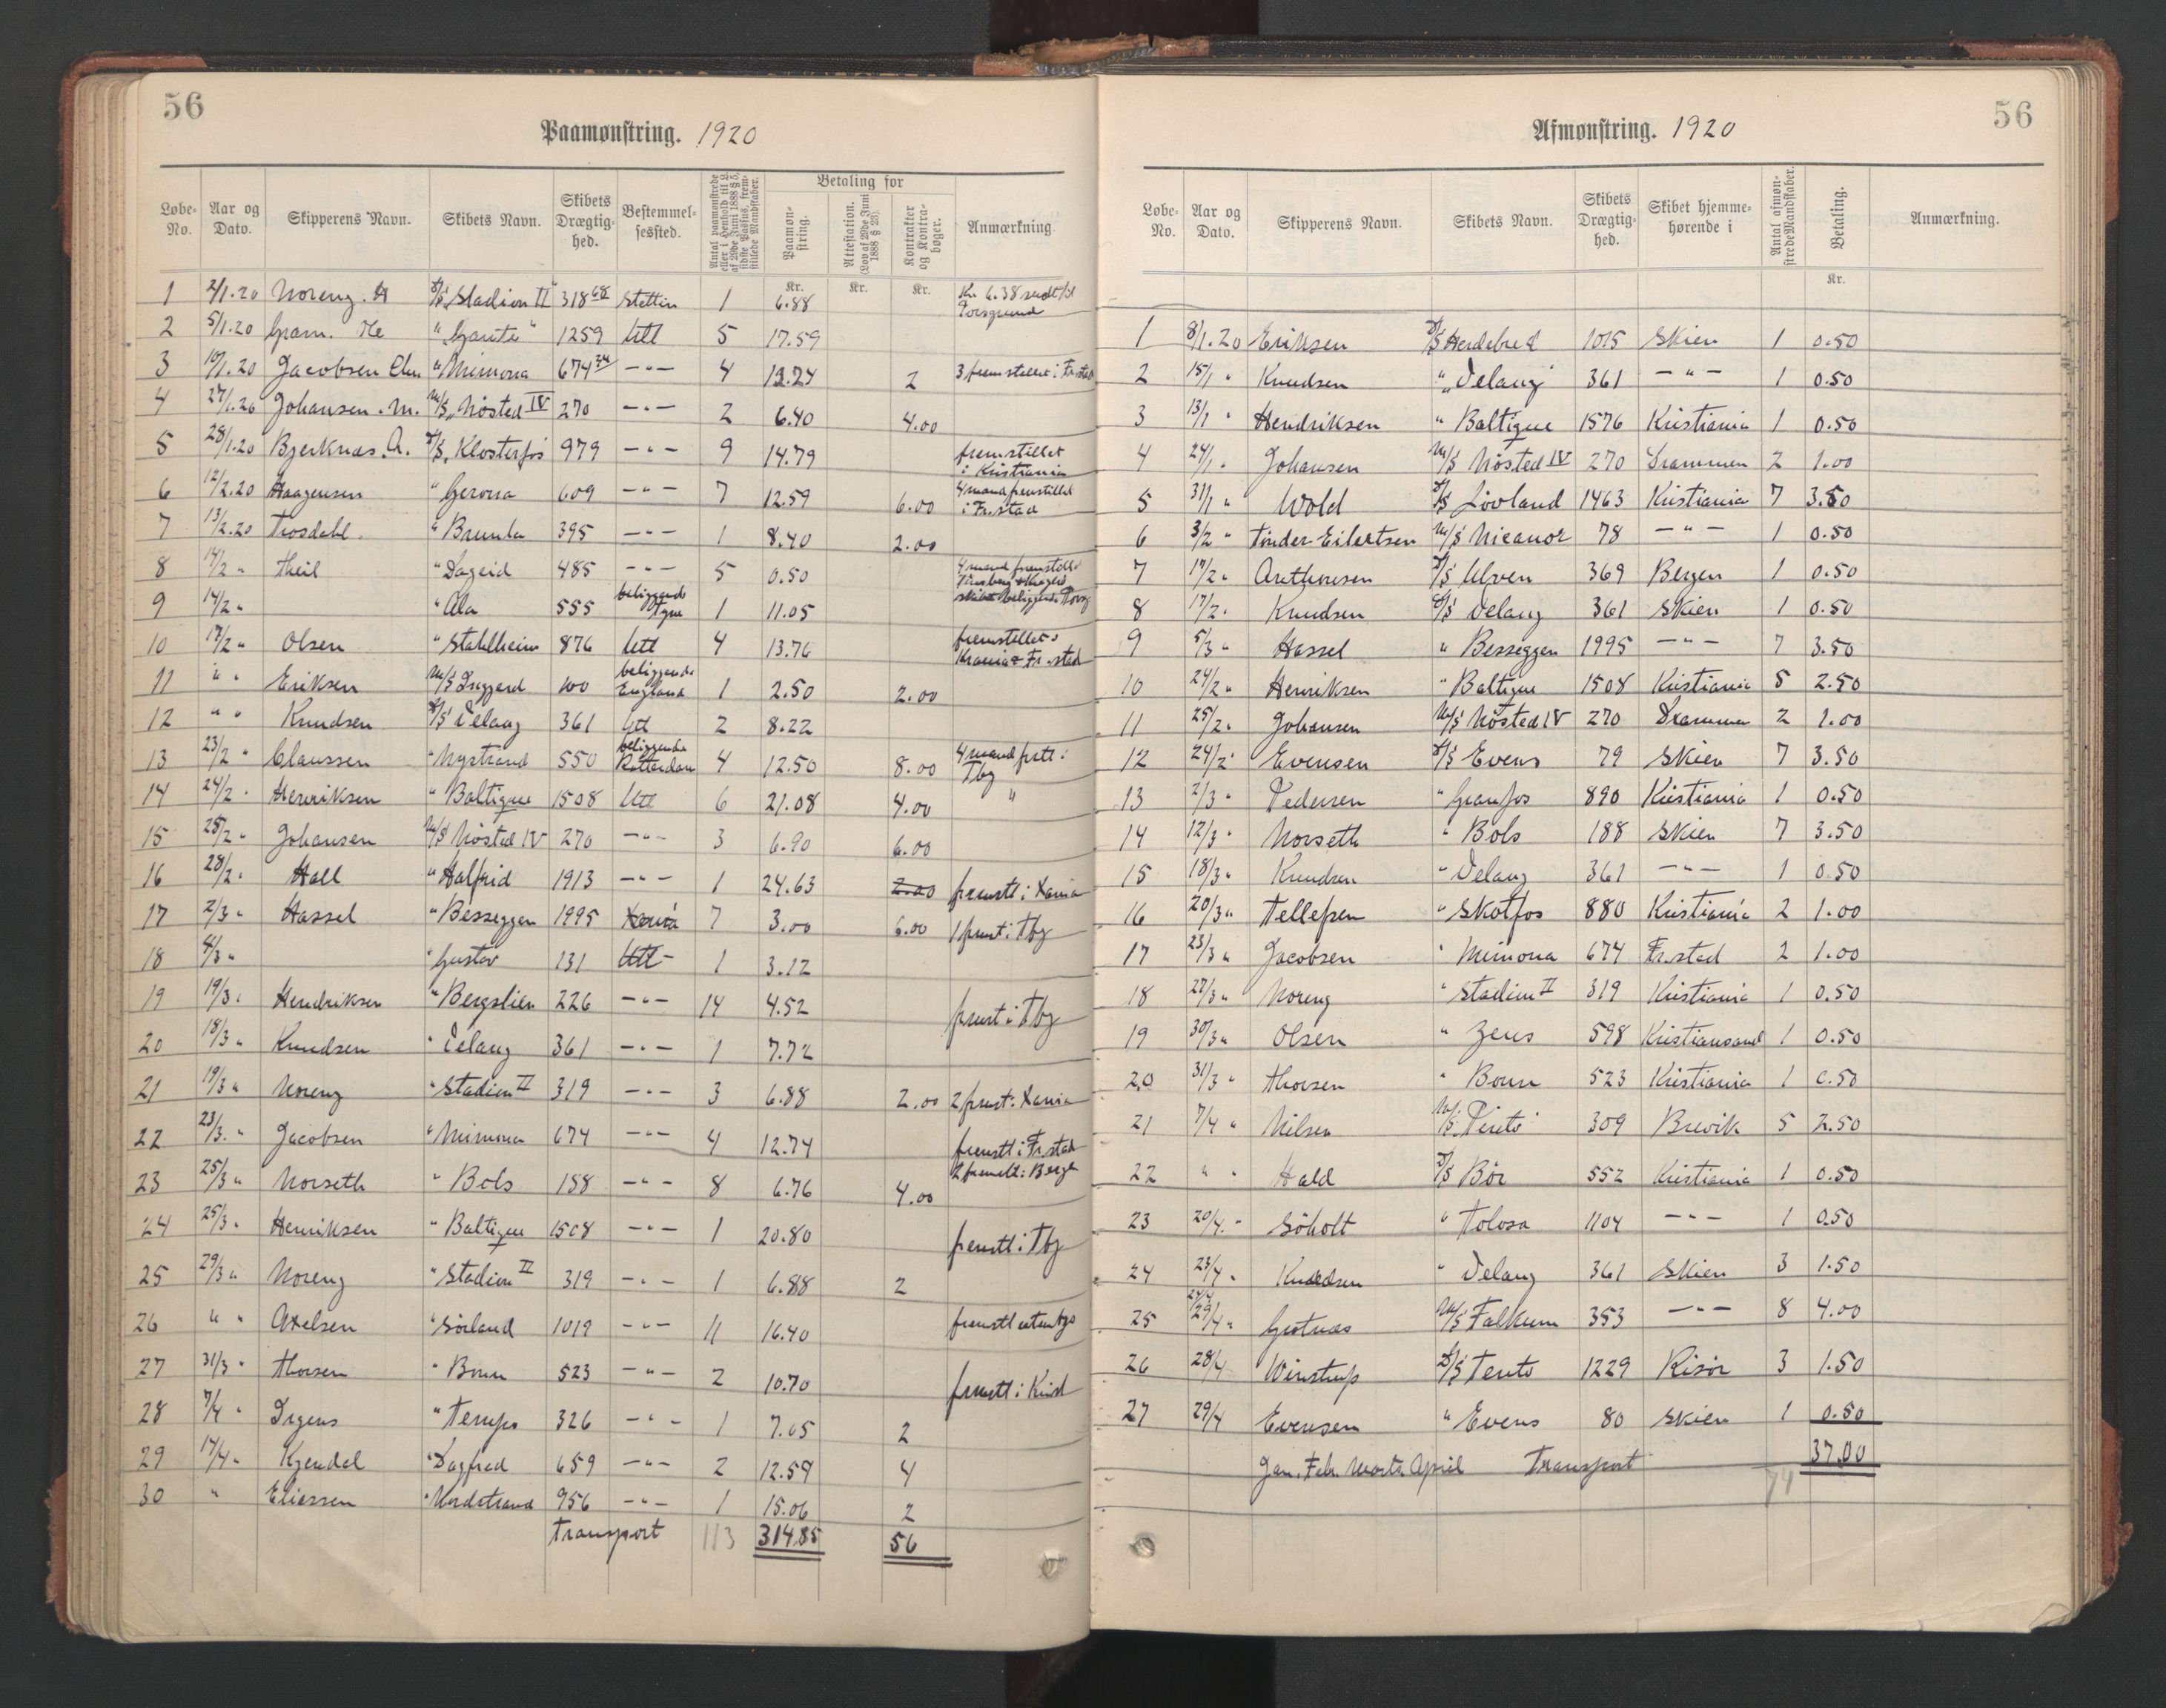 56
Paamønstring. 1920
Løbe-No. Aar og Dato. Skipperens Navn. Skibets Navn. Skibets Drægtig-hed. Bestemmel-sessted. Antal paamønstrede eller i Henhold til L. af 29de Juni 1888 § 5, sidste Passus, frem-stillede Mandskaber. Betaling for Paamøn-string. Attestation. (Lov af 29de Juni 1888 § 28). Kontrakter og Kontra-bøger. Anmærkning
Kr. Kr. Kr.
1 2/1.20 Noreng. H D/S "Stadion II" 318 68 Stettin 1 6.88 Kr. 6.38 sendt til Porsgrund
2 5/1.20 Gram. " Gante " 1259 Utl 5 17.59
3 10/1.20 Jacobsen Chr. " Mimona 674 24 -"- 4 13.24 2 3 fremstillet i Fr.stad
4 27/1.20 Johansen. M. M/S. Nösted IV 270 -"- 2 6.40 4.00
5 28/1.20 Bjerknæs. A. D/S. Klosterfos 979 -"- 9 14.79 fremstillet i Kristiania
6 12/2.20 Haagensen " Gerona 609 -"- 7 12.59 6.00 4 mand fremstillet i Fr.stad
7 13/2.20 Trosdahl. " Brunla 395 -"- 1 8.40 2.00
8 14/2 " Theil " Dageid 485 -"- 5 0.50 4 mand fremstillet
9 14/2 " " Ala 555 beliggende Tyne 1 11.05 skibet beliggende
10 17/2 " Olsen " Stahlheim 876 Utl 4 13.76 fremstillet i Krania & Fr.stad
11 " " Eriksen M/S Dragjard 100 beliggende England 1 2.50 2.00
12 " " Knudsen D/S Delang 361 Utl 2 8.22
13 23/2 " Claussen " Nystrand 550 beliggende Rotterdam 4 12.50 8.00 4 mand frstl i Tbg
14 24/2 " Henriksen " Baltique 1508 Utl 6 21.08 4.00 "
15 25/2 " Johansen M/S Nösted IV 270 -"- 3 6.90 6.00
16 28/2 " Hall " Halfrid 1913 -"- 1 24.63 2.00 fremstl i Xania
17 2/3 " Hassel " Besseggen 1995 Xania 7 3.00 6.00 1 fremst i Tbg
18 8/3 " " Gustav 131 Utl- 1 3.12
19 19/3 " Hendriksen " Bergslien 226 -"- 14 4.52 fremst i Tbg
20 18/3 " Knudsen " Delang 361 -"- 1 7.72
21 19/3 " Noreng " Stadion II 319 -"- 3 6.88 2.00 2 fremst i Xania
22 23/3. " Jacobsen " Mimona 674 -"- 4 12.74 fremstl i Fr.stad
23 25/3 " Norseth " Bols 188 -"- 8 6.76 4.00 2 fremstl i Berge
24 25/3 " Henriksen " Baltique 1508 -"- 1 20.80 fremstl i Tbg
25 29/3 " Noreng " Stadion II 319 -"- 1 6.88 2
26 " " Axelsen " Sörland 1019 -"- 11 16.40 fremstl utenbys
27 31/3 " Thorsen " Bonn 523 -"- 2 10.70 fremstl i Krisd
28 7/4 " Irgens " Tempo 326 -"- 1 7.05 2
29 14/4 " Kjendal " Dagfred 659 -"- 2 12.59 4
30 " Eliassen " Nordstrand 956 -"- 1 15.06 2
Transport 113 314.85 56
56
Afmønstring. 1920
Løbe-No. Aar og Dato. Skipperens Navn. Skibets Navn. Skibets Drægtig-hed. Skibet hjemme-hørende i Antal afmøn-strede Mandskaber. Betaling. Anmærkning.
Kr.
1 8/1.20 Eriksen D/S Herdebred 1015 Skien 1 0.50
2 15/1 " Knudsen " "Delang" 361 -"- 1 0.50
3 13/1 " Hendriksen " Baltique 1576 Kristiania 1 0.50
4 24/1 " Johansen M/S Nösted IV 270 Drammen 2 1.00
5 31/1 " Wold D/S Lövland 1463 Kristiania 7 3.50
6 3/2 " Tönder-Eilertsen M/S Nicanor 78 -"- 1 0.50
7 17/2 " Anthonsen D/S Ulven 369 Bergen 1 0.50
8 17/2 " Knudsen D/S Delang 361 Skien 1 0.50
9 5/3 " Hassel " Besseggen 1995 -"- 7 3.50
10 24/2 " Henriksen " Baltique 1508 Kristiania 5 2.50
11 25/2 " Johansen M/S Nösted IV 270 Drammen 2 1.00
12 24/2 " Evensen D/S Evens 79 Skien 7 3.50
13 2/3 " Pedersen " Granfos 890 Kristiania 1 0.50
14 12/3 " Norseth " Bols 188 Skien 7 3.50
15 18/3 " Knudsen " Delang 361 -"- 1 0.50
16 20/3 " Tellefsen " Skotfos 880 Kristiania 2 1.00
17 23/3 " Jacobsen " Mimona 674 Fr.stad 2 1.00
18 27/3 " Noreng " Stadion II 319 Kristiania 1 0.50
19 30/3 " Olsen " Zeus 598 Kristiansand 1 0.50
20 31/3 " Thorsen " Bonn 523 Kristiania 1 0.50
21 7/4 " Nilsen M/S. Pinto 309 Brevik 5 2.50
22 " " Hald D/S Bör 552 Kristiania 1 0.50
23 20/4. " Söholt " Tolosa 1104 -"- 1 0.50
24 23/4 " Knudsen " Delang 361 Skien 3 1.50
25 24/4 29/4 " Gostnæs M/S Falkum 353 -"- 8 4.00
26 28/4 Winstrup D/S Tento 1229 Risör 3 1.50
27 29/4 Evensen " Evens 80 Skien 1 0.50
Jan. Feb. Marts. April Transport 74 37.00